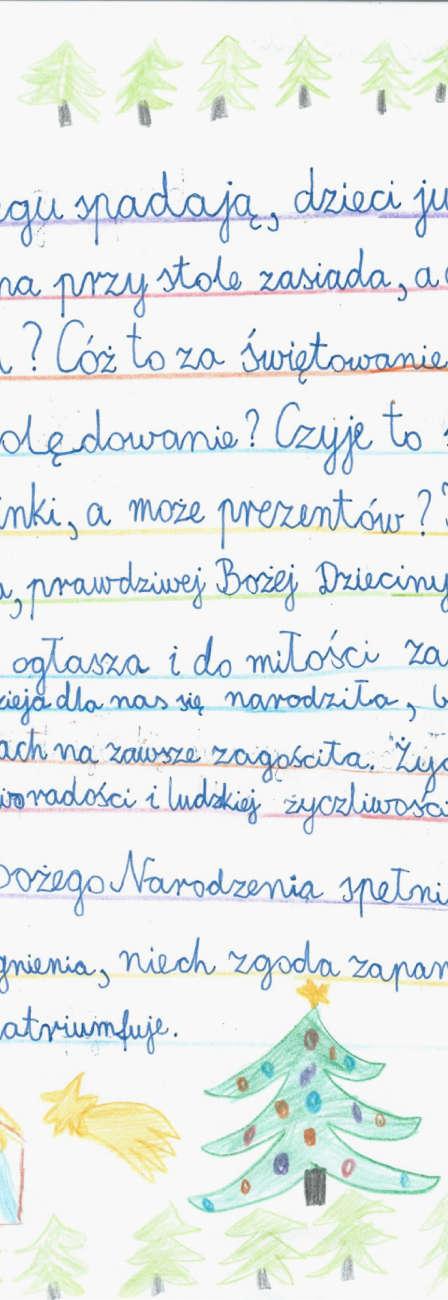 egu spadają, dzieci ju
na przy stole zasiada, a
? Cóż to za świętowanie
olędowanie? Czyje to
inki, a może prezentów?
a, prawdziwej Bożej Dzieciny
ogłasza i do miłości za
zieja dla nas się narodziła,
ach na zawsze zagościła. Życ
wo radości i ludzkiej życzliwośc
Bożego Narodzenia spełni
gnienia, niech zgoda zapan
atriumfuje.